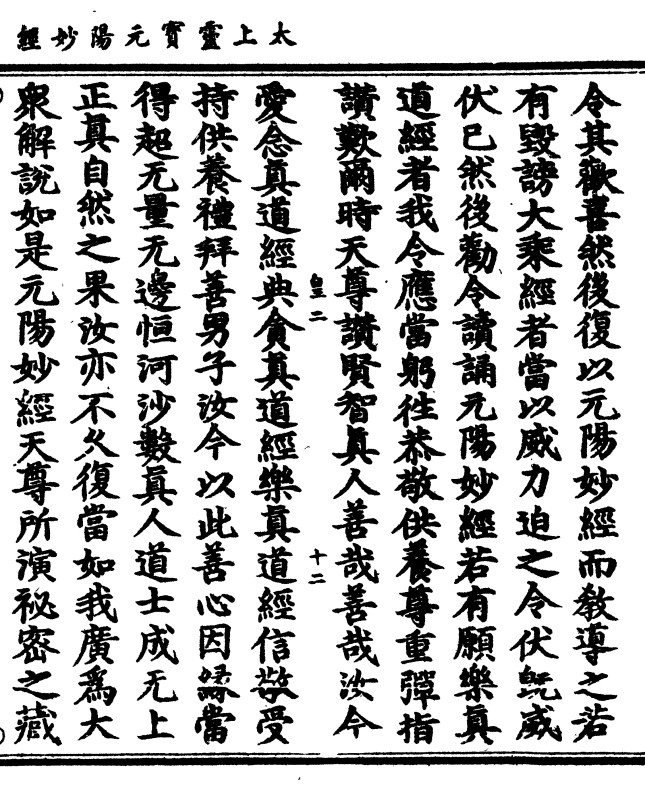 太上靈寶元陽妙經
令其歡喜然後復以元陽妙經而教導之若
有毀謗大乘經者當以威力迫之令伏旣威
伏已然後勸令讀誦元陽妙經若有願樂真
道經者我令應當躬往恭敬供養尊重彈指
讃歎爾時天尊讃賢智真人善哉善哉汝今
皇二
十二
愛念真道經典貪真道經樂真道經信敬受
持供養禮拜善男子汝今以此善心因緣當
得超无量无邊恒河沙數真人道士成无上
正真自然之果汝亦不久復當如我廣爲大
衆解說如是元陽妙經天尊所演祕密之藏